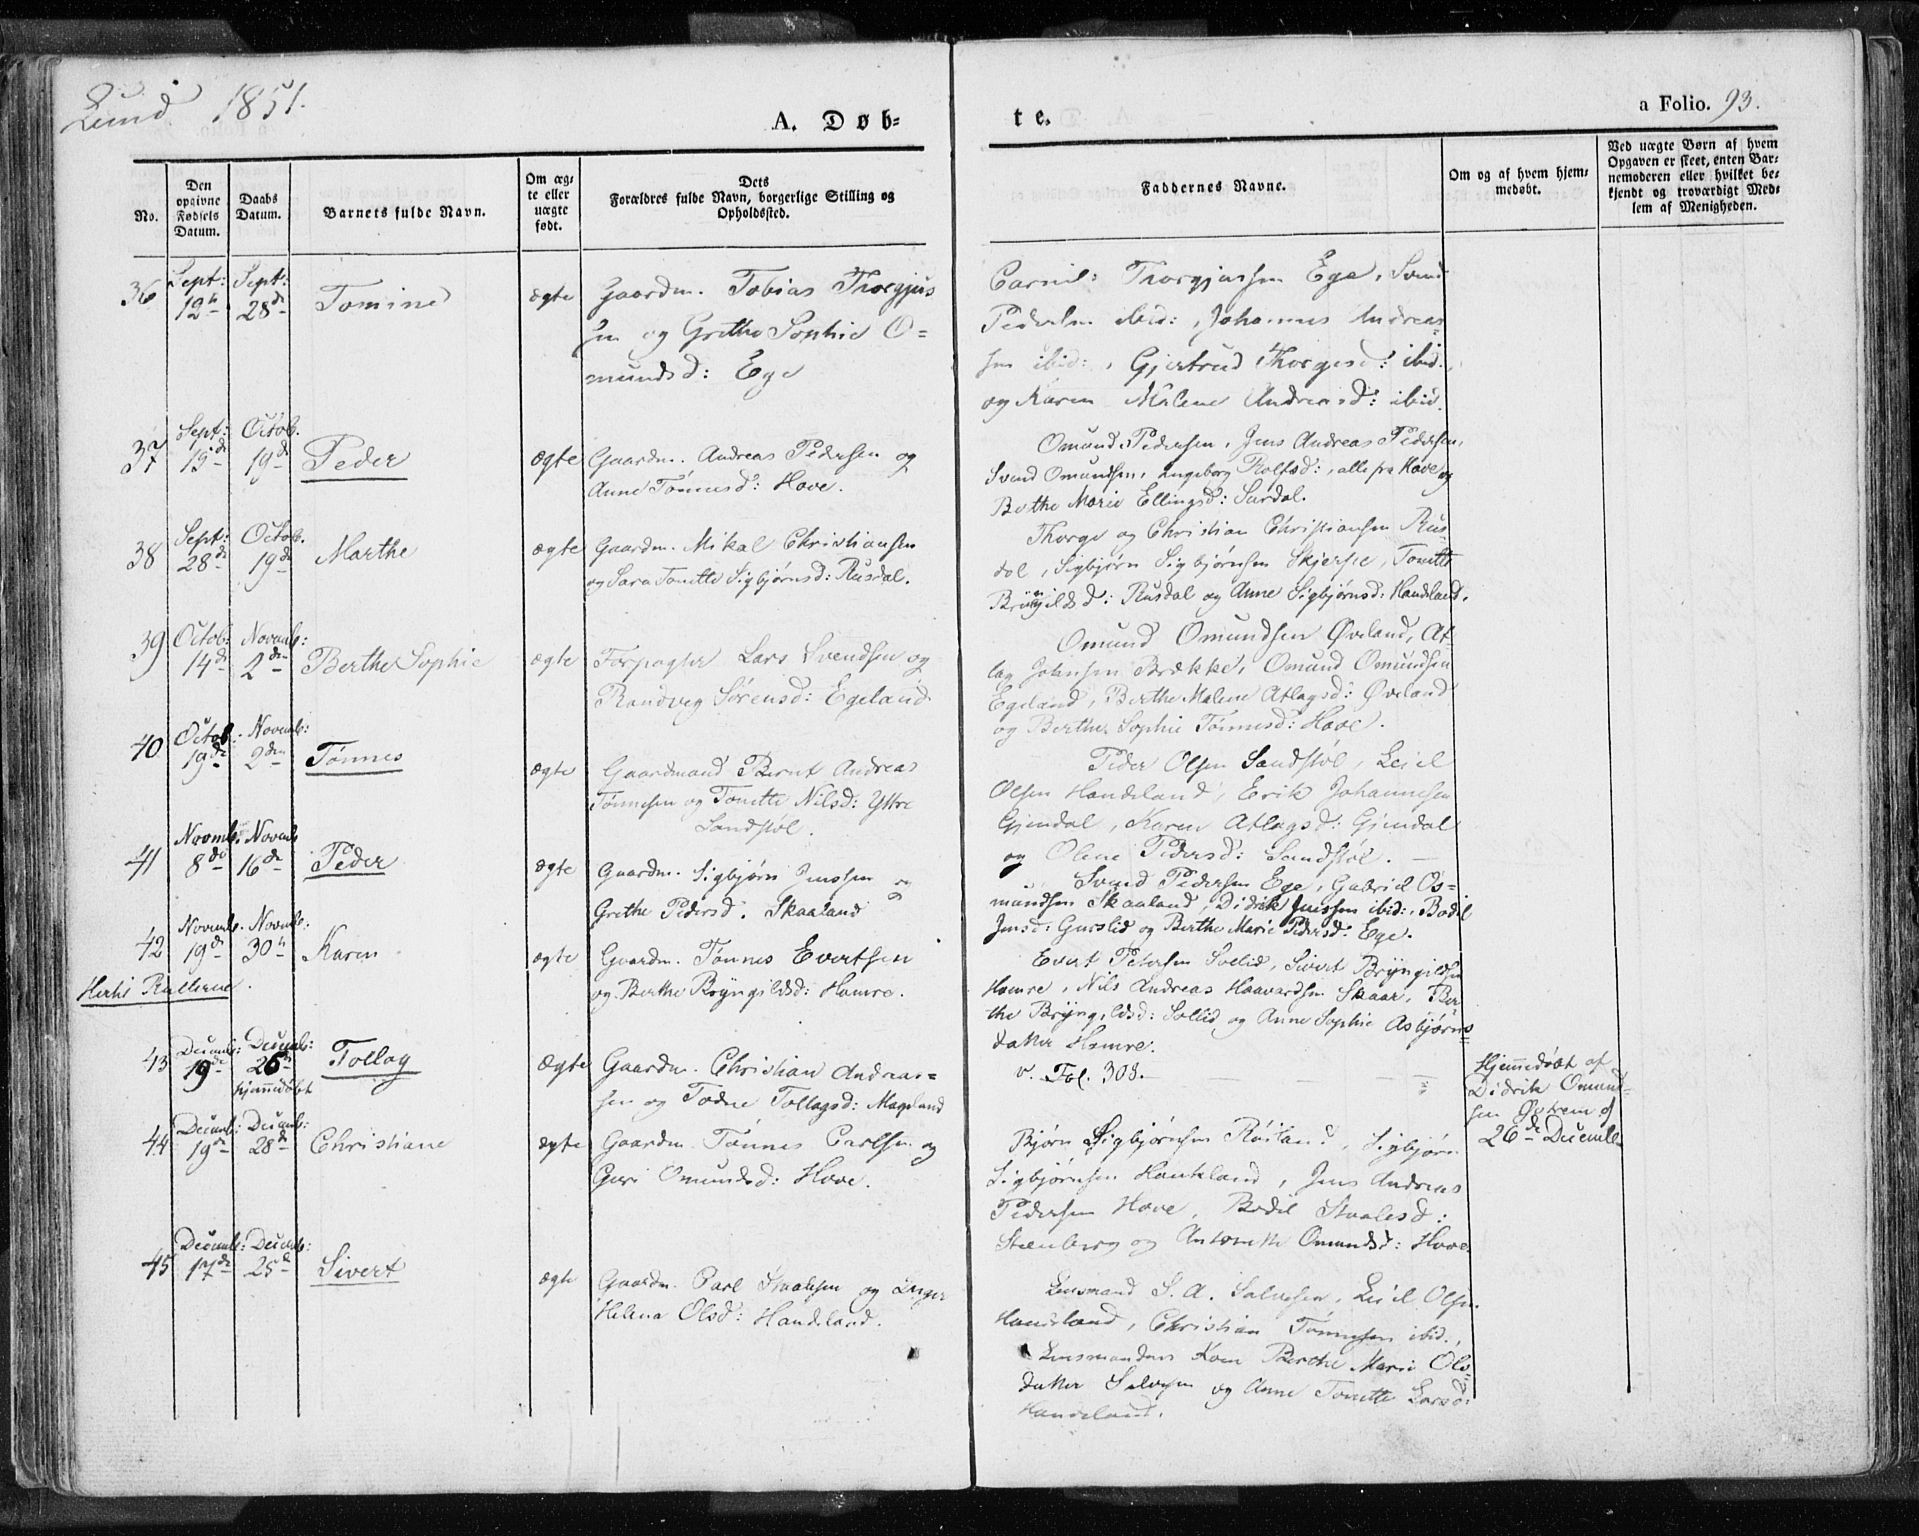 Lund 1851.
A. Døb-
te.
a Folio. 93.
No.
Den
opgivne
Fødsels
Datum.
Daabs
Datum.
Barnets fulde Navn.
Om æg-
te eller
uægte
født.
Dets
Forældres fulde Navn, borgerlige Stilling og
Opholdssted.
Faddernes Navne.
Om og af hvem hjem-
medøbt.
Ved uægte Børn af hvem
Opgaven er skeet, enten Bar-
nemoderen eller hvilket be-
kjendt og troværdigt Med-
lem af Menigheden.
36 Sept: 12te Sept: 28de Tomine ægte
Gaardm. Tobias Thorgjus
sen og Grethe Sophie O-
mundsd: Ege
Thorgjussen Ege, Svend
Pedersen ibid:, Johannes Andreas-
sen ibid:, Gjertrud Thorgesd: ibid.,
og Karen Malene Andreasd: ibid.
37 Sept: 15de Octob. 19de Peder ægte
Gaardm. Andreas Pedersen og
Anne Tønnesd: Hove.
Omund Pedersen, Jens Andreas Pedersen,
Svend Omundsen, Ingeborg Rolfsd:, alle fra Hove og
Berthe Marie Ellingsd: Surdal.
38 Sept: 28de Octob. 19de Marthe ægte
Gaardm. Mikal Christiansen
og Sara Tonette Sigbjørnsd: Rusdal.
Thorge og Christian Christiansen Rus-
dal, Sigbjørn Sigbjørnsen Skjerpe, Tonette
Bryngildsd: Rusdal og Anne Sigbjørnsd: Handeland.
39 Octob: 14de Novemb: 2den Berthe Sophie ægte
Forpagter Lars Svendsen og
Randveg Sørensd: Egeland
Omund Omundsen Øveland, At-
lag Johnsen Brække, Omund Omundsen
Egeland, Berthe Malene Atlagsd: Øveland
og Berthe Sophie Tønnesd: Hove.
40 Octob: 19de Novemb: 2den Tønnes ægte
Gaardmand Bernt Andreas
Tønnesen og Tonette Nilsd: Yttre
Sandstøl.
Peder Olsen Sandstøl, Leiel
Olsen Handeland, Erik Johannesen
Gjendal, Karen Atlagsd: Gjendal
og Olene Pedersd: Sandstøl.
41 Novemb. 8de Novemb 16de Peder ægte
Gaardm. Sigbjørn Jenssen og
Grethe Pedersd. Skaaland
Svend Pedersen Ege, Gabriel Os-
mundsen Skaaland, Didrik Jenssen ibid:, Bodil
Jensd: Gurslid og Berthe Marie Pedersd: Ege.
42 Novemb. 19de Novemb: 30te Karen ægte
Gaardm. Tønnes Evertsen
og Berthe Bryngildsd: Hamre.
Evert Petersen Sollid, Sivert Bryngildsen
Hamre, Nils Andreas Haavardsen Skaar, Ber
the Bryngildsd: Sollid og Anne Sophie Asbjørns
datter Hamre.
43 Decemb: 19de Decemb: 26de
hjemmedøbt
Tollag ægte
Gaardm. Christian Andreas-
sen og Todne Tollagsd: Mageland
v. Fol. 308.
Hjemmedøbt af
Didrik Omund-
sen Østrem d
26de Decemb
44 Decemb: 19de Decemb: 28de Christiane ægte
Gaardm. Tønnes Carlsen og
Guri Omundsd: Hove.
Bjørn Sigbjørnsen Røiland, Sigbjørn
Sigbjørnsen Haukland, Jens Andreas
Pedersen Hove, Bodil Staalesd:
Steenberg og Antonette Omundsd: Hove.
45 Decemb: 17de Decemb: 25de Sivert ægte
Gaardm. Carl Staalesen og Inger
Helena Olsd: Handeland.
Lensmand S. A. Salvesen, Leiel Olsen
Handeland, Christian Tønnesen ibid.,
Lensmandens Kone Berthe Marie Ols-
datter Salvesen og Anne Tonette Larsd:
Handeland.